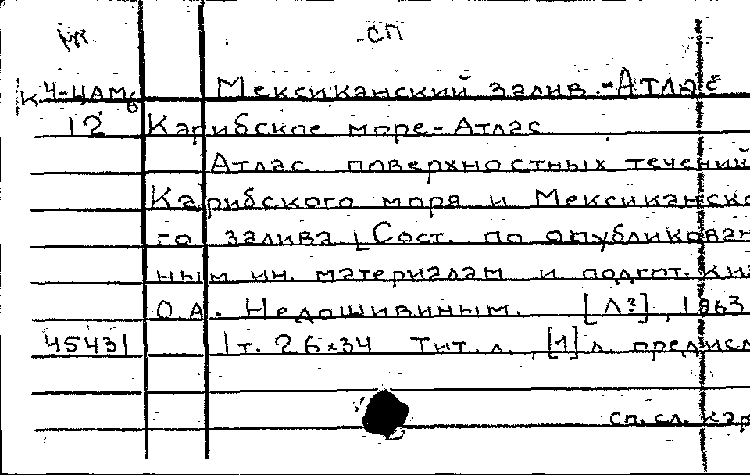 СП
К 4-ЦАМ 6 Мексиканский залив.-Атлас
12 Карибское море-Атлас
Атлас поверхностных течений
Карибского моря и Мексиканско
го залива. [Сост. по опубликован
ным ин. материалам и подгот. к
О.А. Недошивиным. [Л?], 1963
45431 1т. 26×34 Тит. л. [1] л. предисл
сп. сл. кар